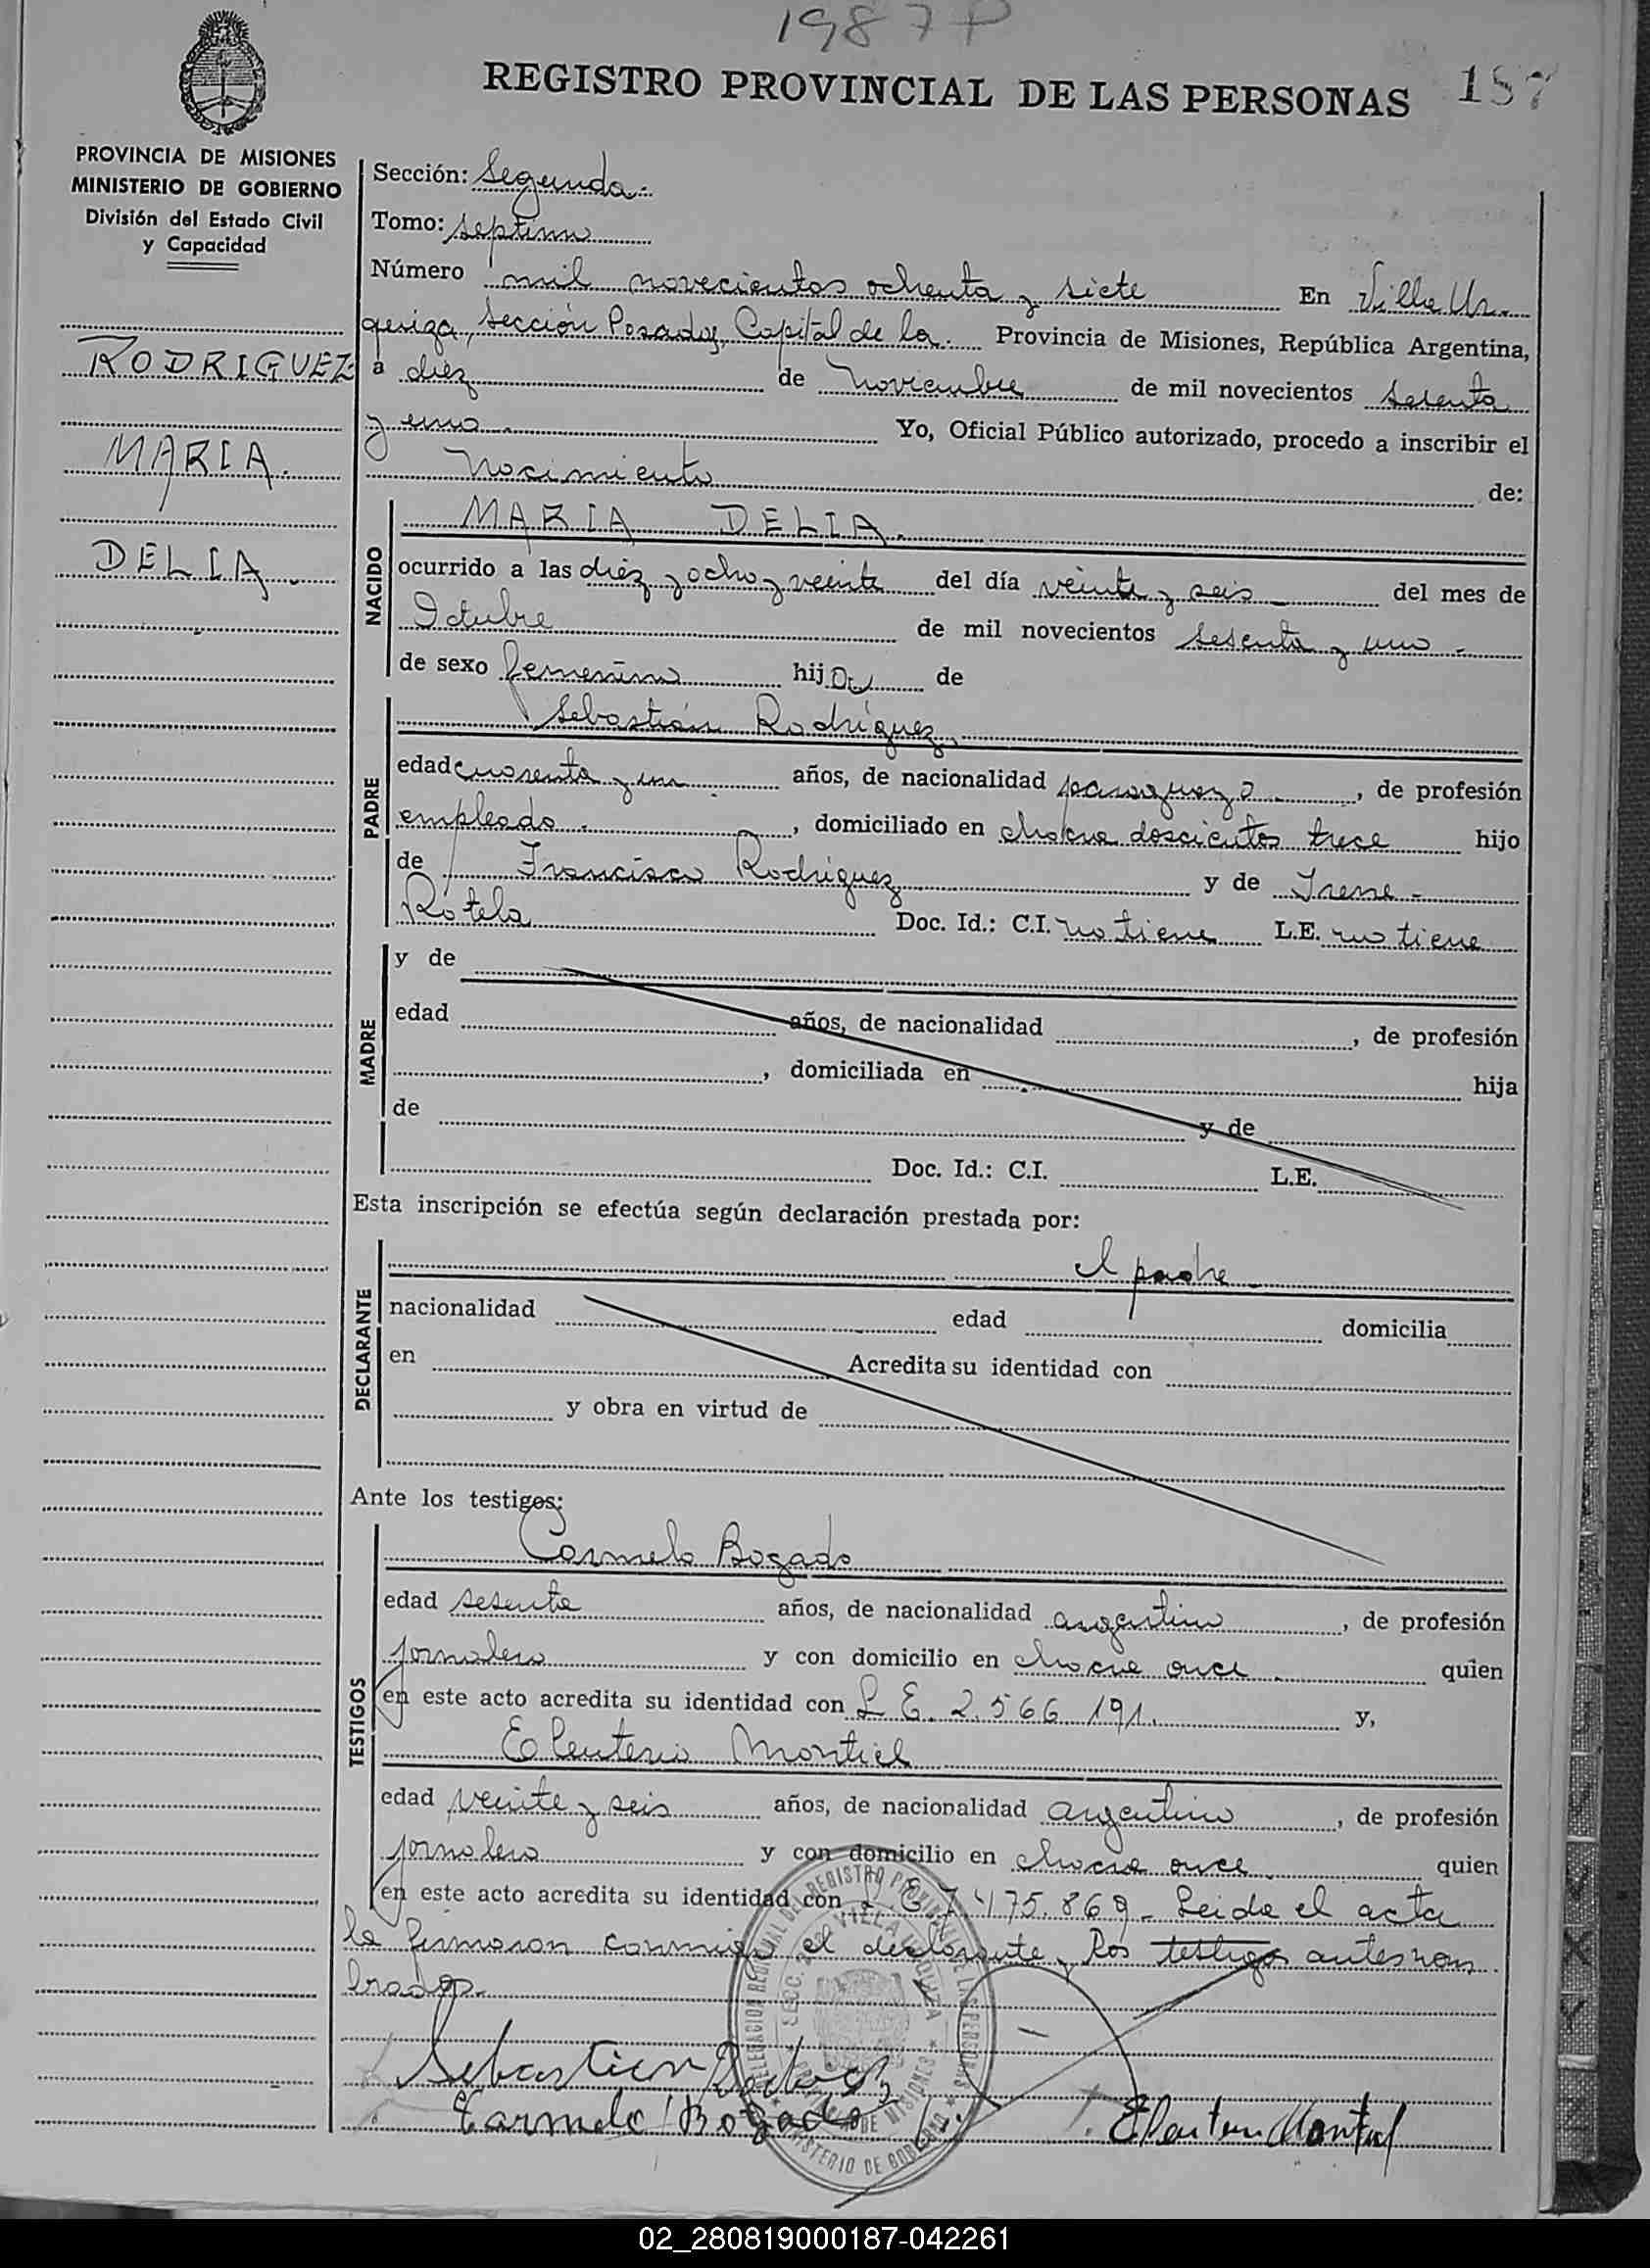 1987 P
REGISTRO PROVINCIAL DE LAS PERSONAS 187
PROVINCIA DE MISIONES
MINISTERIO DE GOBIERNO
División del Estado Civil
y Capacidad
RODRIGUEZ
MARIA
DELIA.
Sección: Segunda.
Tomo: septimo
Número mil novecientos ochenta y siete En Villa Ur
quiza, Sección Posadas, Capital de la Provincia de Misiones, República Argentina,
a diez de Noviembre de mil novecientos sesenta
y uno Yo, Oficial Público autorizado, procedo a inscribir el
Nacimiento de:
NACIDO
MARIA DELIA.
ocurrido a las diez y ocho y veinte del día veinte y seis del mes de
Octubre de mil novecientos sesenta y uno
de sexo femenino hija de
PADRE
Sebastián Rodríguez
edad cuarenta y un años, de nacionalidad paraguaya, de profesión
empleado, domiciliado en chacra doscientos trece hijo
de Francisco Rodriguez y de Irene
Rotela Doc. Id.: C.I. no tiene L.E. no tiene
MADRE
y de
edad años, de nacionalidad , de profesión
, domiciliada en hija
de y de
Doc. Id.: C.I. L.E.
Esta inscripción se efectúa según declaración prestada por:
DECLARANTE
el padre
nacionalidad edad domicilia
en Acredita su identidad con
y obra en virtud de
Ante los testigos:
TESTIGOS
Carmelo Bogado
edad sesenta años, de nacionalidad argentino, de profesión
jornalero y con domicilio en chacra once quien
en este acto acredita su identidad con L E. 2.566.191. y,
Eleuterio Montiel
edad veinte y seis años, de nacionalidad argentino, de profesión
jornalero y con domicilio en chacra once quien
en este acto acredita su identidad con L E. 7.475.869 - Leida el acta
la firmaron conmigo el declarante y los testigos antes nom
brados.
Sebastian
Carmelo Bogado
Eleuterio Montiel
DELEGACION REGIONAL DEL REGISTRO PROVINCIAL DE LAS PERSONAS
MINISTERIO DE GOBIERNO
SECC. 2da VILLA URQUIZA
PROVINCIA DE MISIONES
02_280819000187-042261